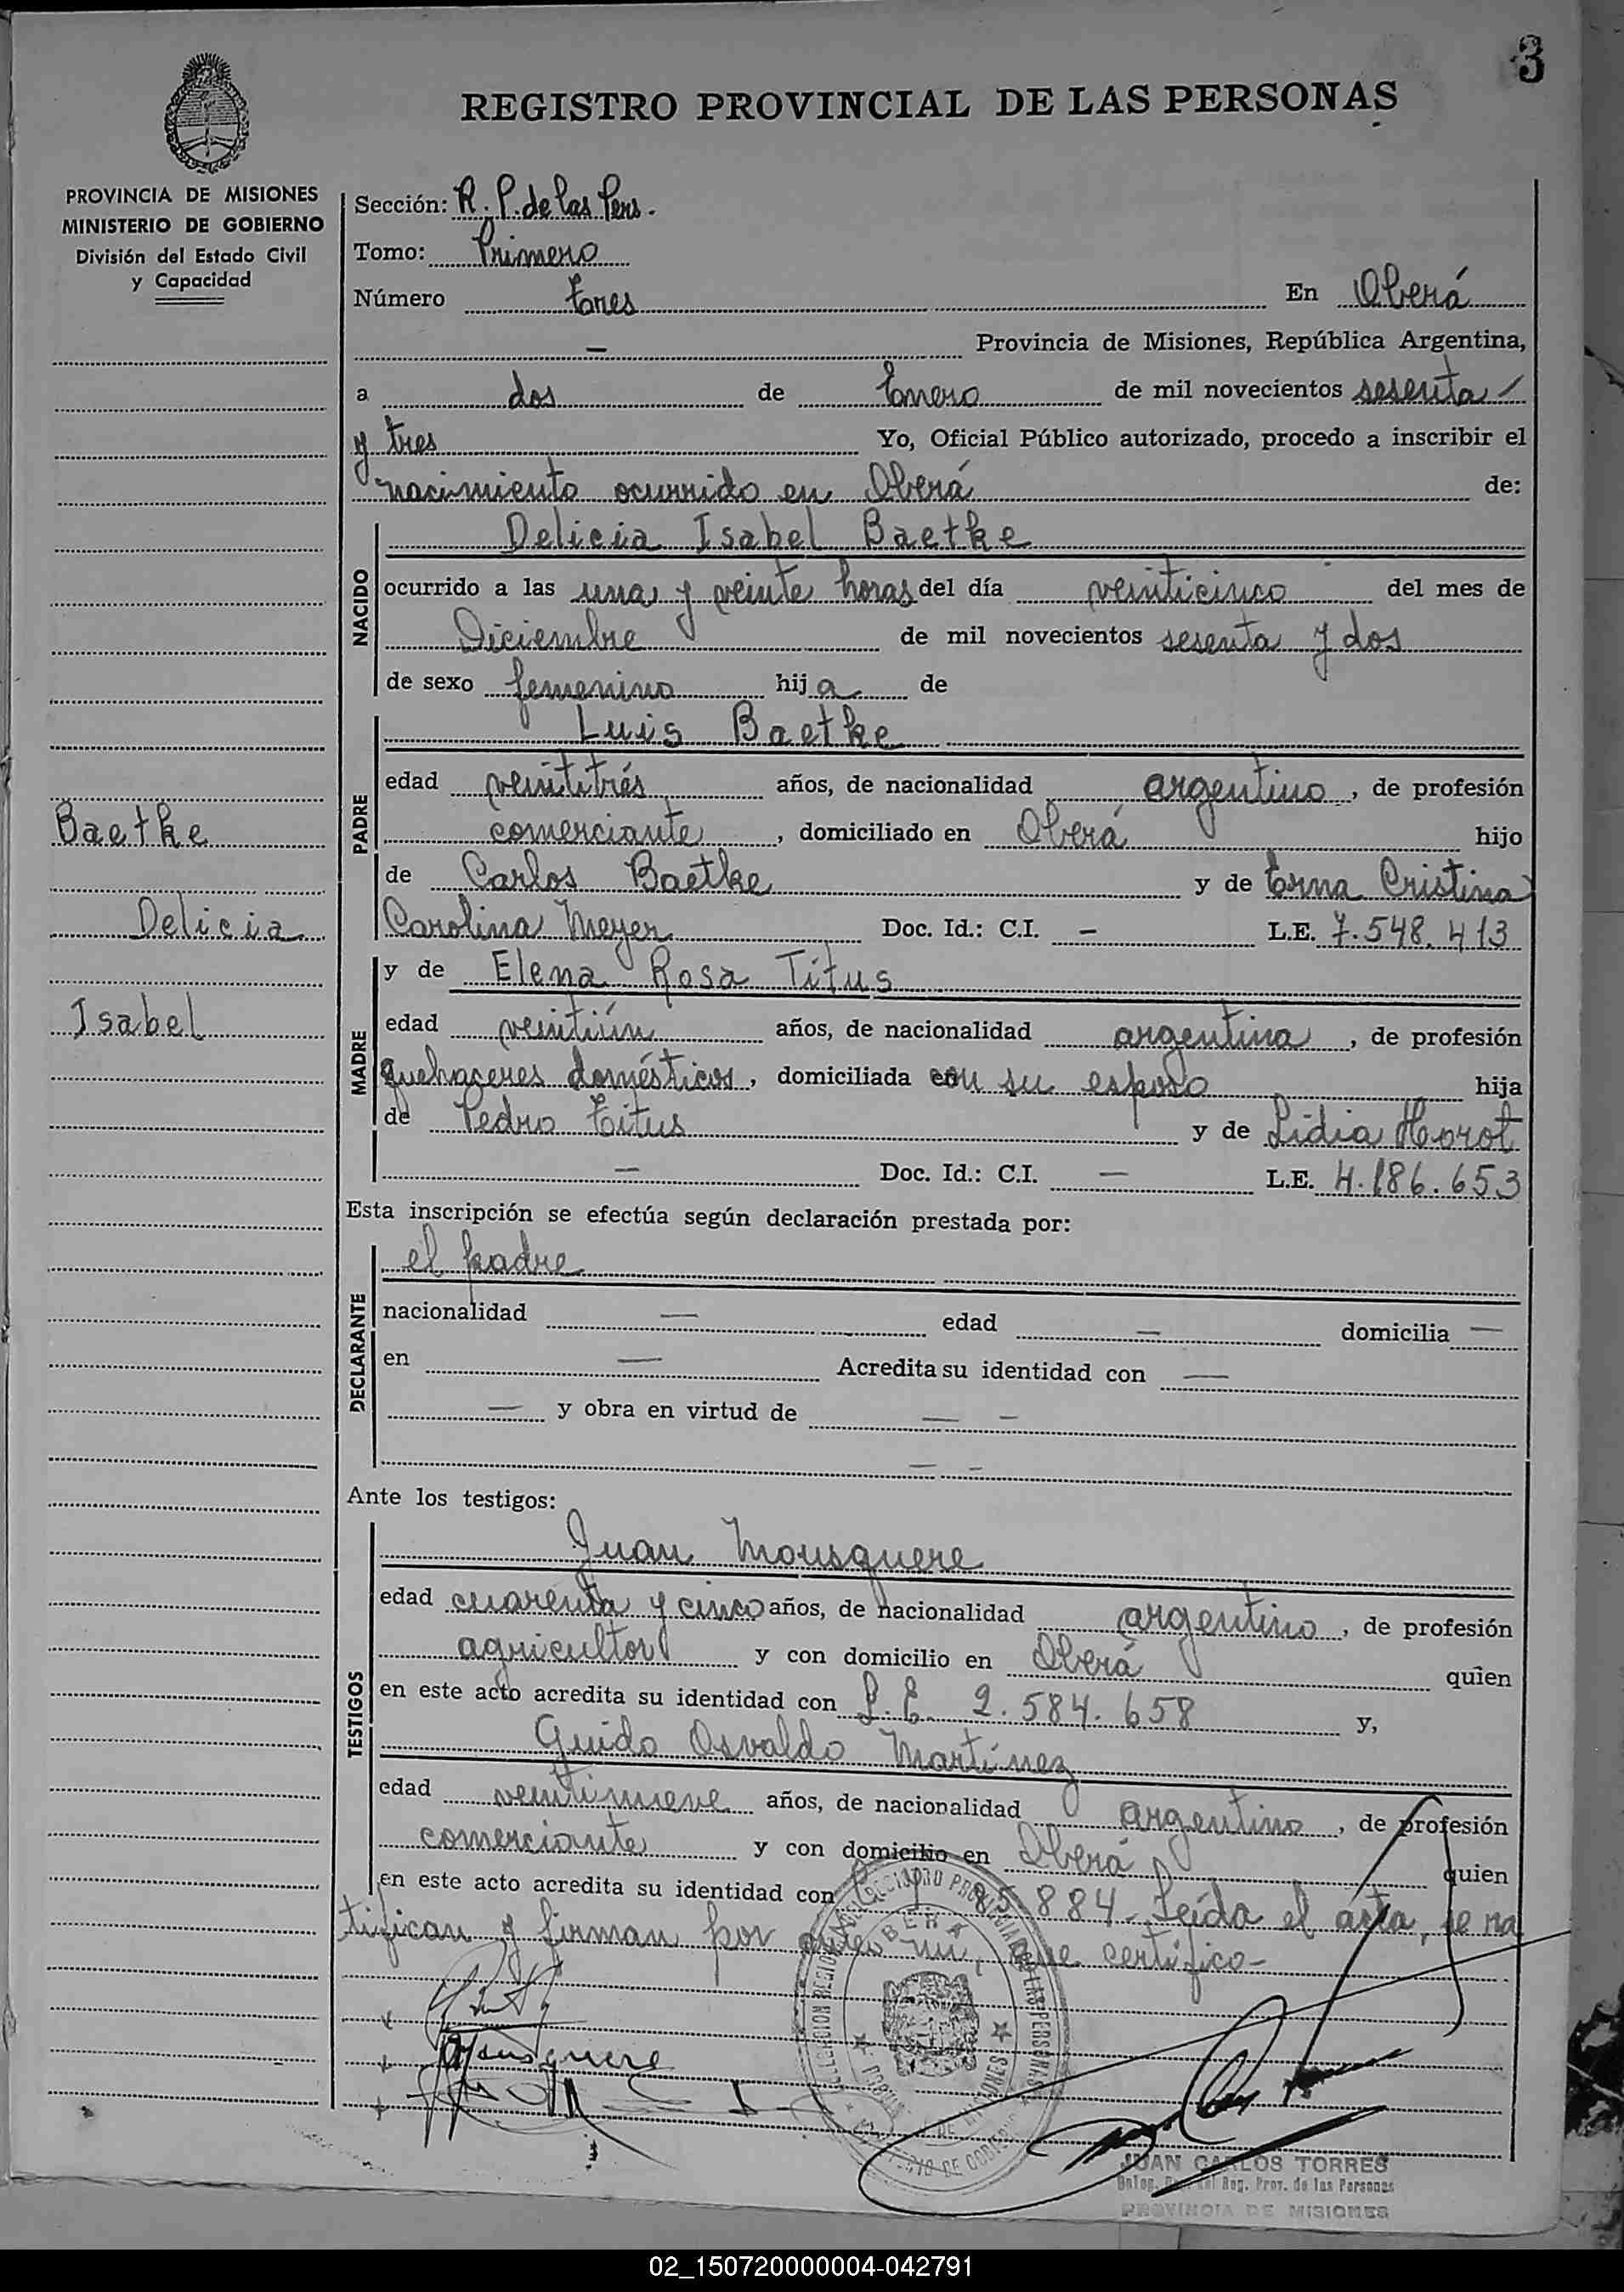 3
REGISTRO PROVINCIAL DE LAS PERSONAS
PROVINCIA DE MISIONES
MINISTERIO DE GOBIERNO
División del Estado Civil
y Capacidad
Sección: R. P. de las Pers.
Tomo: Primero
Número tres En Oberá
— Provincia de Misiones, República Argentina,
a dos de Enero de mil novecientos sesenta
y tres Yo, Oficial Público autorizado, procedo a inscribir el
nacimiento ocurrido en Oberá de:
Delicia Isabel Baetke
NACIDO
ocurrido a las una y veinte horas del día veinticinco del mes de
Diciembre de mil novecientos sesenta y dos
de sexo femenino hija de
Luis Baetke
PADRE
edad veintitrés años, de nacionalidad argentino, de profesión
comerciante, domiciliado en Oberá hijo
de Carlos Baetke y de Erna Cristina
Carolina Meyer Doc. Id.: C.I. — L.E. 7.548.413
Baetke
Delicia
Isabel
MADRE
y de Elena Rosa Titus
edad veintiún años, de nacionalidad argentina, de profesión
quehaceres domésticos, domiciliada con su esposo hija
de Pedro Titus y de Lidia Horot
— Doc. Id.: C.I. — L.E. 4.186.653
Esta inscripción se efectúa según declaración prestada por:
DECLARANTE
el padre
nacionalidad — edad — domicilia —
en — Acredita su identidad con —
— y obra en virtud de — —
— —
Ante los testigos:
TESTIGOS
Juan Mousquere
edad cuarenta y cinco años, de nacionalidad argentino, de profesión
agricultor y con domicilio en Oberá quien
en este acto acredita su identidad con L.E. 2.584.658 y,
Guido Osvaldo Martinez
edad veintinueve años, de nacionalidad argentino, de profesión
comerciante y con domicilio en Oberá quien
en este acto acredita su identidad con 884. Leída el acta, se ra
tifican y firman por ante mi, que certifico-
Mousquere
OBERÁ
JUAN CARLOS TORRES
Reg. Prov. de las Personas
PROVINCIA DE MISIONES
02_150720000004-042791